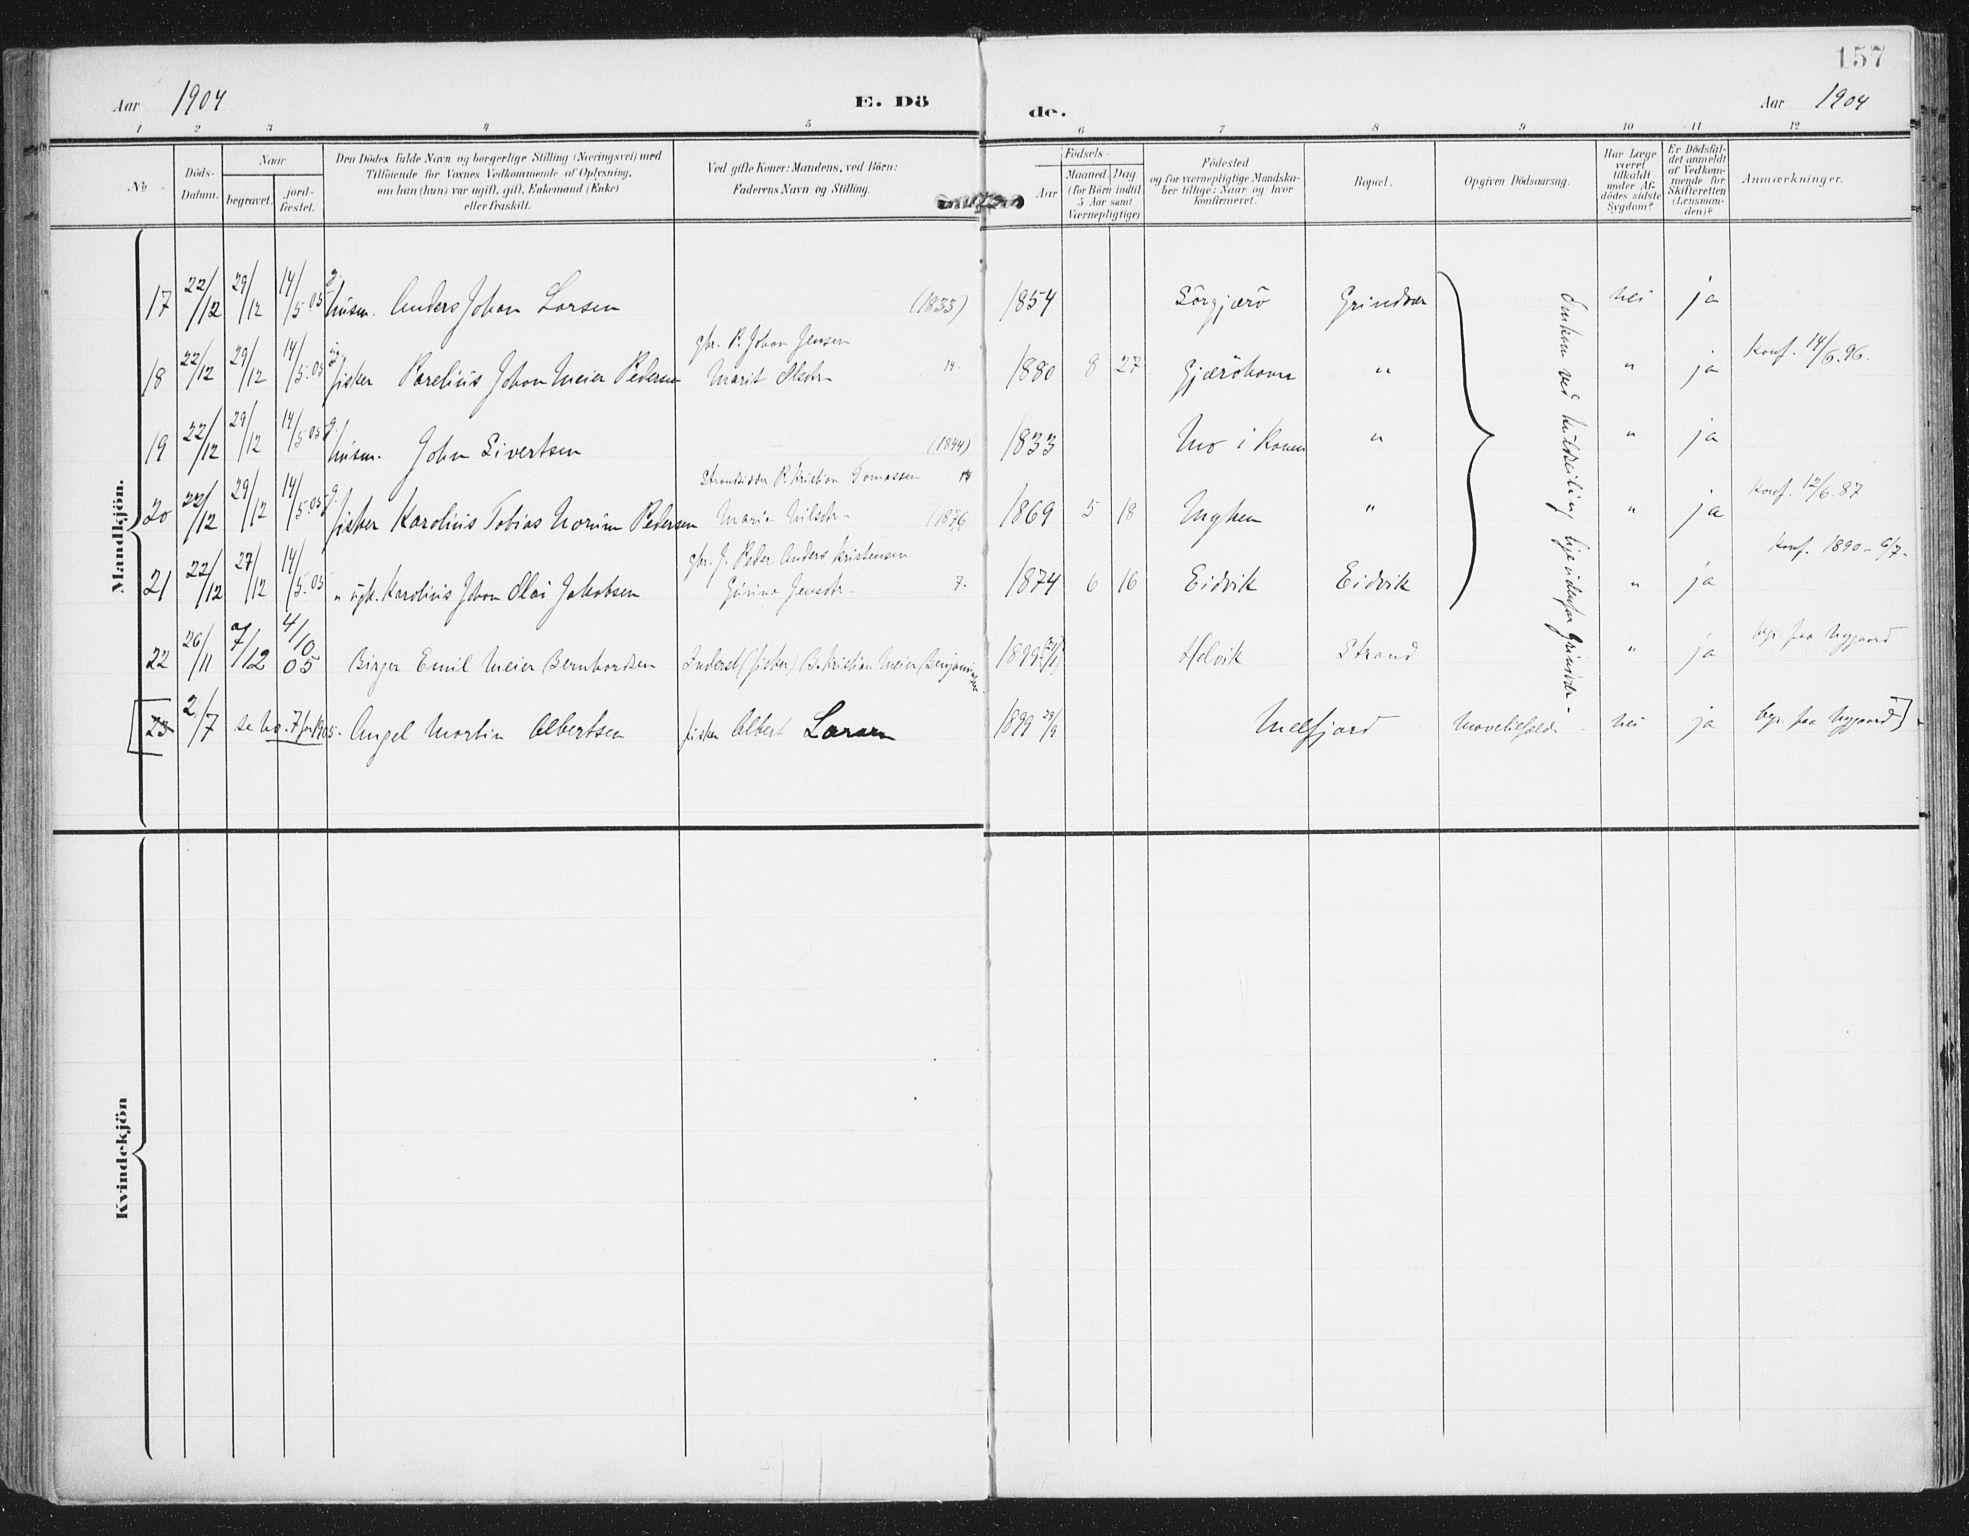 157
Aar 1904 E. Dö de. Aar 1904
1 2 3 4 5 6 7 8 9 10 11 12
No
Döds-Datum.
Naar
begravet.
jord-fæstet.
Den Dödes fulde Navn og borgerlige Stilling (Næringsvei) med
Tilföiende for Voxnes Vedkommende af Oplysning,
om han (hun) var ugift, gift, Enkemand (Enke)
eller fraskilt.
Ved gifte Koner: Mandens, ved Börn:
Faderens Navn og Stilling.
Födsels-
Aar
Maaned. Dag
(for Börn indtil
5 Aar samt
Værnepligtige)
Födested
og for værnepligtige Mandska-
ber tillige: Naar og hvor
konfirmeret.
Bopæl.
Opgiven Dödsaarsag.
Har Læge
været
tilkaldt
under Af-
dödes sidste
Sygdom?
Er Dödsfal-
det anmeldt
af Vedkom-
mende for
Skifteretten
(Lensman-
den)?
Anmærkninger.
Mandkjön.
17 22/12 29/12 14/5 05 g. husm. Anders Johan Larsen (1833) 1854 Sörgjærö Grindvær nei ja
gbr. P. Johan Jensen
18 22/12 29/12 14/5 05 ug. fisker Parelius Johan Meier Pedersen Marit Olsdtr 14. 1880 8 27 Gjæröhavn " " ja Konf. 14/6.96.
19 22/12 29/12 14/5 05 g. husm. John Sivertsen (1844) 1833 Mo i Ranen " " ja
Strandsidder P. Kristian Tomassen 14
20 22/12 29/12 14/5 05 g. fisker Karolius Tobias Norum Pedersen Marie Nilsdtr (1876 1869 5 18 Myken " " ja Konf. 12/6.87
gbr. J. Peder Anders Kristensen
21 22/12 27/12 14/5 05 " ugk. Karolius Johan Olai Jakobsen Gurine Jensdtr 7. 1874 6 16 Eidvik Eidvik " ja Konf. 1890 - 6/7-
Omkom ved kuldseiling
22 26/11 7/12 4/10 05 Birger Emil Meier Bernhardsen Inderst (fisker) B. Kristian Meier Benjaminsen 1899 Helvik Strand " ja begr. paa Nygaard
[23 2/7 se No. 7 for 1905. Angel Martin Albertsen fisker Albert Larsen 1899 29/9 Melfjord nei ja begr. paa Nygaard]
Kvindekjön